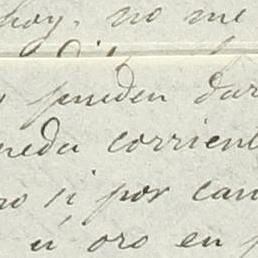 hoy. no me
pueden dar
neda corrient
no si por cam
ú oro en p